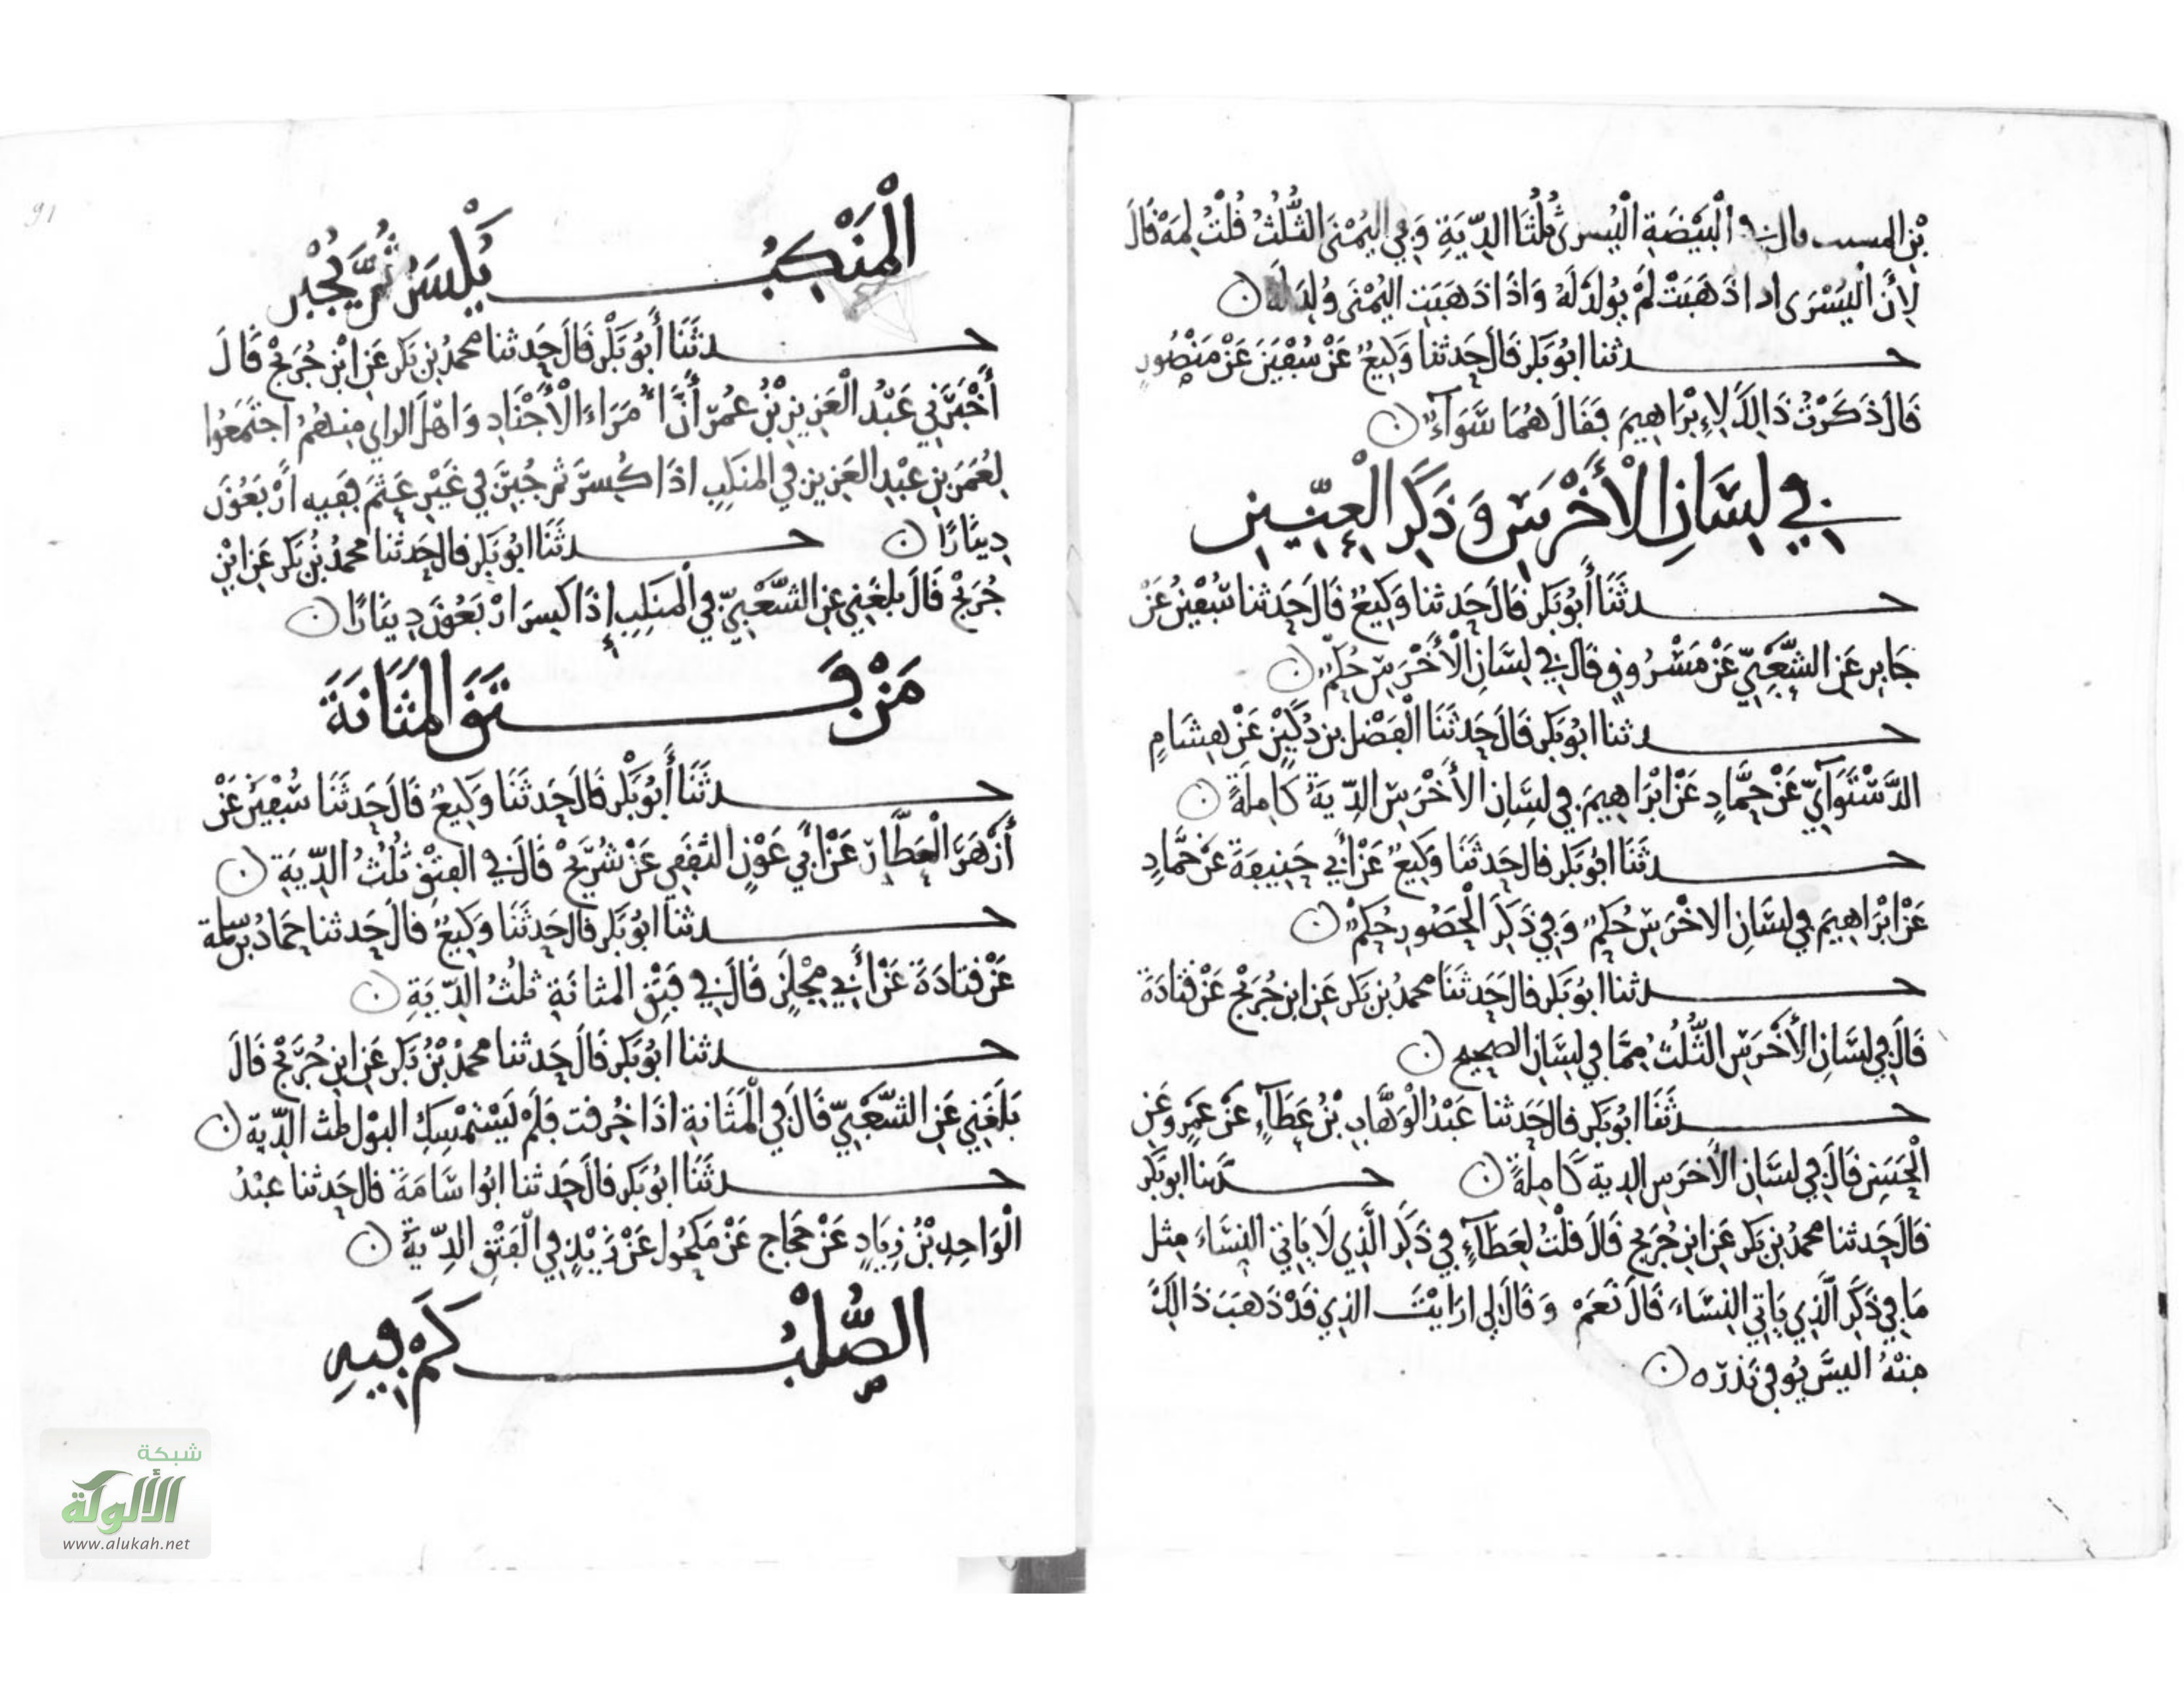 بْنِ المسيب قال في الْبَيْضَةِ الْيُسرى ثُلُثَا الدِّيَةِ وَفِي الْيُمْنَى الثُّلُثُ قُلْتُ لِمَهْ قَالَ
لِأَنَّ الْيُسْرَى اذا ذَهَبَتْ لَمْ يُولَدْ لَهُ وَاذَا ذَهَبَتِ الْيُمْنَى وُلِدَ لَهُ
حدثنا ابُو بَكر قَالَ حَدثنا وَكِيعٌ عَنْ سُفْيَنَ عَنْ مَنْصُورٍ
قَالَ ذَكَرْتُ ذَالِكَ لِإِبْرَاهِيمَ فَقَالَ هُمَا سَوَآءٌ
فِي لِسَانِ الْأَخْرَسِ وَذَكَرِ الْعِنِّينِ
حدثَنَا أَبُو بَكر قَالَ حَدثنا وَكِيعٌ قَالَ حَدثنا سُفْيَنُ عَنْ
جَابِرٍ عَنِ الشَّعْبِيِّ عَنْ مَسْرُوقٍ قَالَ فِي لِسَانِ الْأَخْرَسِ حُكْمٌ
حدثنا ابُو بَكر قَالَ حَدثَنَا الْفَضْل بن دُكَيْنٍ عَنْ هِشَامٍ
الدَّسْتَوَآئِيِّ عَنْ حَمَّادٍ عَنْ ابْرَاهِيمَ فِي لِسَانِ الأَخْرَسِ الدِّيَةُ كَامِلَةً
حدثَنَا ابُو بَكر قال حَدثَنَا وَكِيعٌ عَنْ أَبِي حَنِيفَةَ عَنْ حَمَّادٍ
عَنْ ابْرَاهِيمَ فِي لِسَانِ الاخْرَسِ حُكمٌ وَفِي ذَكَرِ الْحَصُورِ حُكمٌ
حدثنا ابُو بَكر قال حَدثَنَا محمدُ بن بَكر عَنِ ابنِ جُرَيْجٍ عَنْ قَتَادَةَ
قَالَ فِي لِسَانِ الأَخْرَسِ الثُّلُثُ مِمَّا فِي لِسَانِ الصحِيحِ
حدثَنَا ابُو بَكر قال حَدثنا عَبْدُ الْوَهَّابِ بْنُ عَطَآءٍ عَنْ عَمْرٍو عَنِ
الْحَسَنِ قَالَ فِي لِسَانِ الأَخرَسِ الدية كَامِلَةً حدثنا ابو بَكر
قَالَ حَدثنا محمدُ بن بَكر عَنِ ابنِ جُرَيجٍ قَالَ قُلْتُ لِعَطَآءٍ فِي ذَكَرِ الَّذِي لَا يَاتِي النِّسَاءَ مِثل
مَا فِي ذَكَرِ الَّذِي يَاتِي النِّسَاءَ قَالَ نَعَمْ وَقَالَ لِي ارَايْتَ الذِي قَدْ ذَهَبَ ذَالِكَ
مِنْهُ الَيْسَ يُوفى نَذرَه
91
الْمَنْكِبُ يُكْسَرُ ثُمَّ يُجْبَر
حدثَنَا أَبُو بَكْر قَالَ حَدثنا محمدُ بن بَكر عَنِ ابْنِ جُرَيْجٍ قَالَ
أَخْبَرَنِي عَبْدُ الْعَزِيزِ بْنُ عُمَرَ أَنَّ أُمَرَاءَ الْأَجْنَادِ وَاهْلَ الراي مِنهُمُ اجتَمَعُوا
لِعُمَرَ بنِ عَبْدِ العَزِيزِ فِي المَنكِبِ اذَا كُسِرَ ثم جُبِرَ فِي غَيْرِ عَثَمٍ فَفِيهِ أَرْبَعُونَ
دِينَارًا حدثَنَا ابُو بَكر قال حَدثنا محمدُ بْنُ بَكر عَنِ ابْنِ
جُرَيْجٍ قَالَ بلغَنِي عَنِ الشَّعْبِيِّ فِي الْمَنكِبِ إِذَا كُسِرَ ارْبَعُونَ دِينَارًا
مَنْ فَتَقَ الْمَثَانَةَ
حدثَنَا أَبُو بَكْر قَالَ حَدثَنَا وَكِيعٌ قَالَ حَدثَنَا سُفْيَنُ عَنْ
أَزْهَرَ الْعَطَّار عَنْ أَبِي عَوْنٍ الثقَفِي عَنْ شُرَيْحٍ قَالَ فِي الفَتْقِ ثُلُثُ الدِّيَةِ
حدثنا ابُو بَكر قال حَدثَنَا وَكِيعٌ قالَ حَدثنا حَمادُ بن سلمة
عَنْ قَتادَةَ عَنْ أَبِي مِجْلَزٍ قَالَ فِي فَتْقِ المثانَةِ ثلُثُ الدِّيَةِ
حدثنا ابُو بَكر قَالَ حَدثنا محمدُ بْنُ بَكر عَنِ ابنِ جُرَيْجٍ قَالَ
بَلَغَنِي عَنِ الشَّعْبِيِّ قَالَ فِي الْمَثَانَةِ اذَا خُرِقت فَلَمْ يَسْتَمْسِكِ البَوْل ثلث الدِّيَة
حدثَنَا ابُو بَكر قالَ حَدثنا ابُوا سَامَةَ قالَ حَدثنا عَبْدُ
الْوَاحِدِ بْنُ زِيَادٍ عَنْ حَجاج عَنْ مَكحُولٍ عَنْ زَيْدٍ فِي الْفَتْقِ الدِّيَةُ
الصُّلْبُ كَمْ فِيهِ
شبكة
الألوكة
www.alukah.net